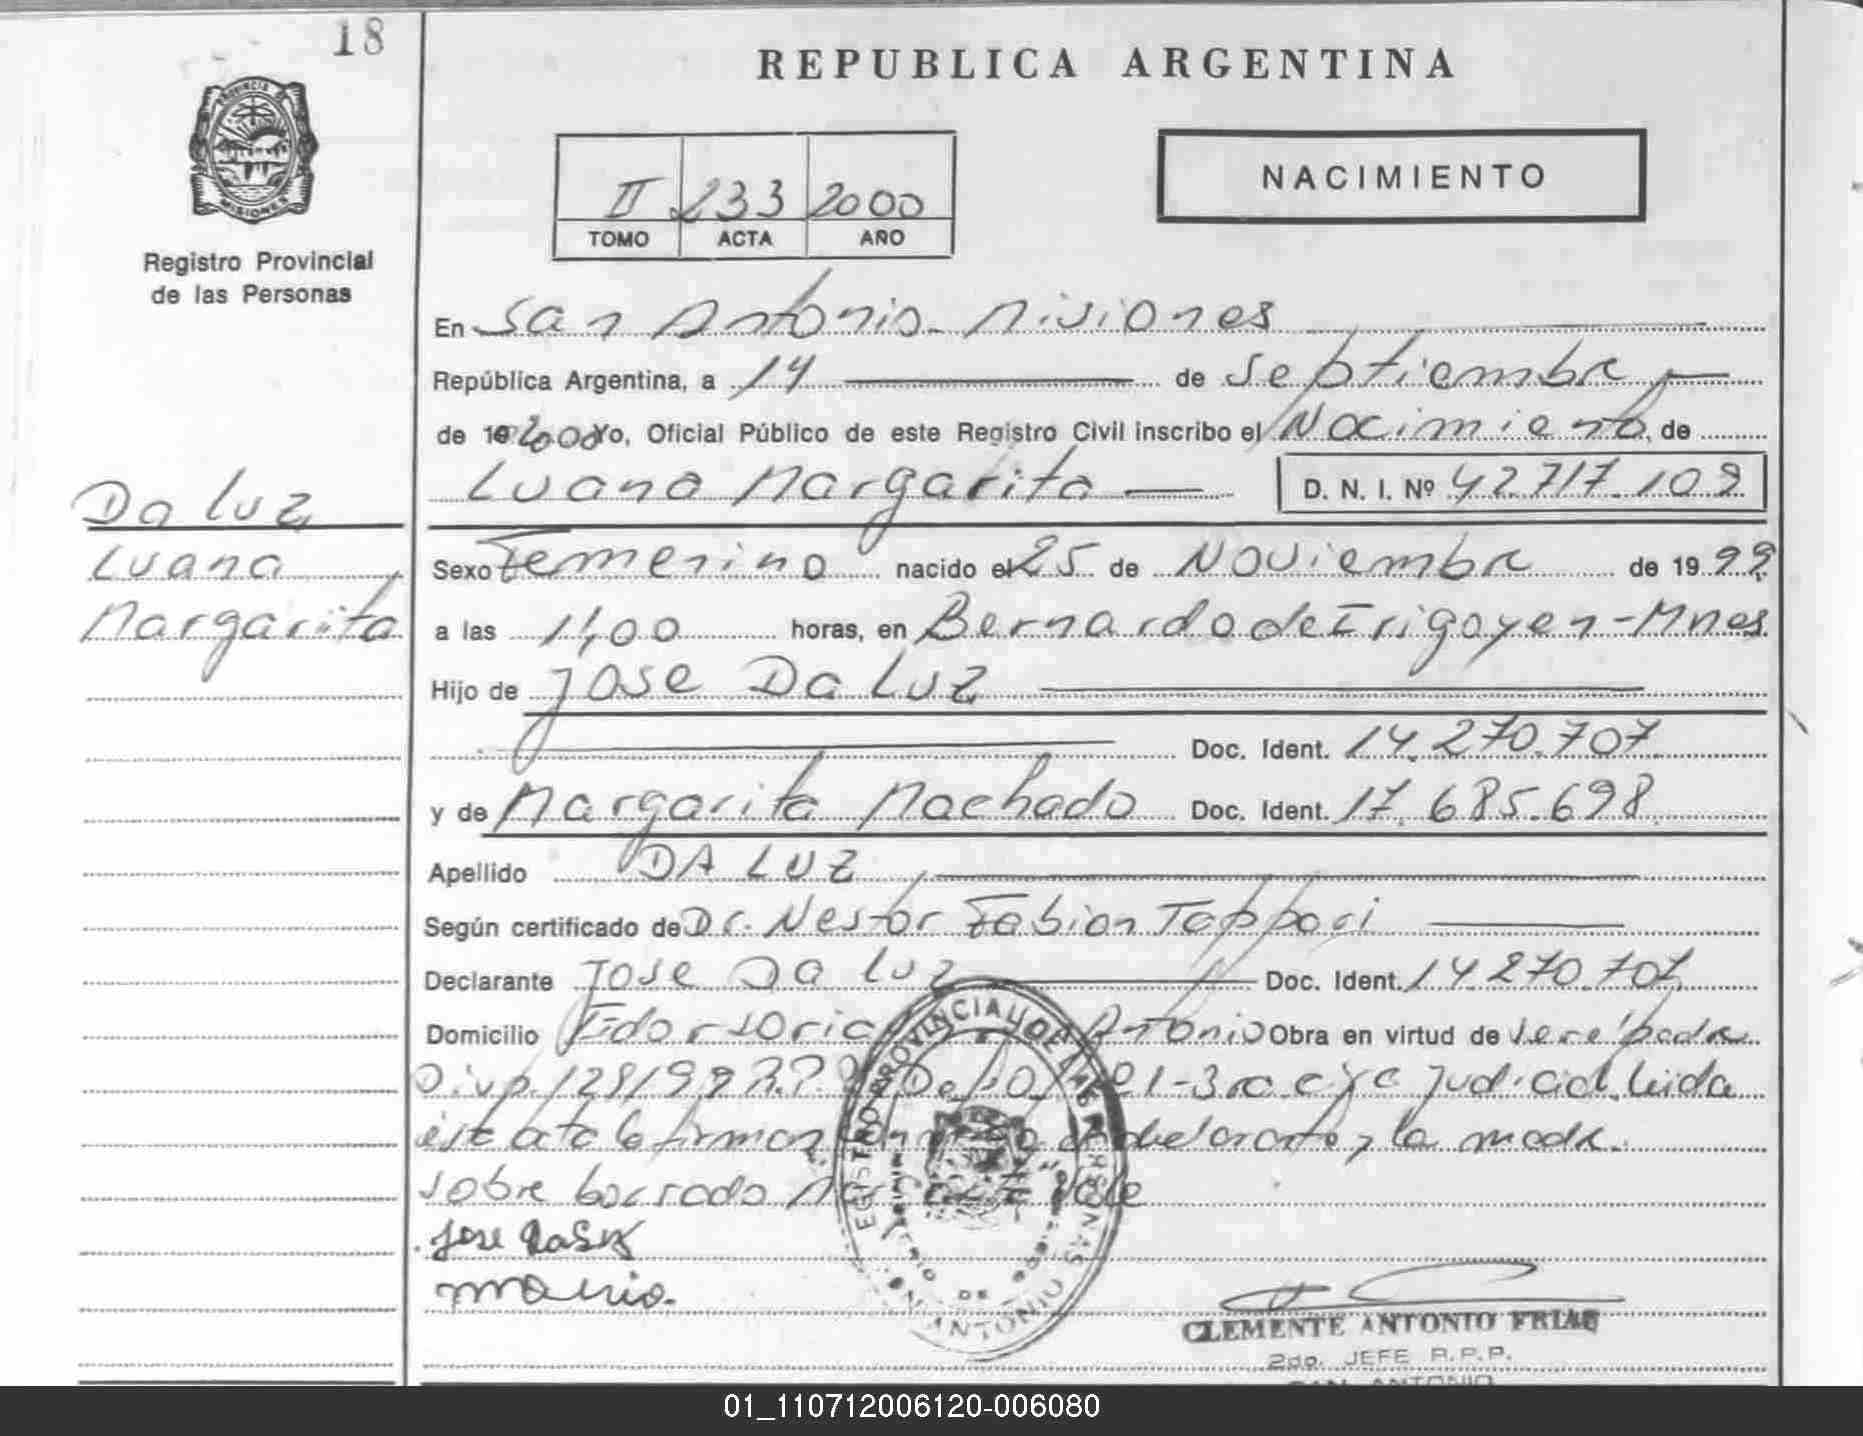 18
REPUBLICA ARGENTINA
PROVINCIA DE
MISIONES
Registro Provincial
de las Personas
II 233 2000
TOMO ACTA AÑO
NACIMIENTO
En San Antonio - Misiones
República Argentina, a 14 de Septiembre
de 2000 Yo, Oficial Público de este Registro Civil inscribo el Nacimiento, de
Luana Margarita D. N. I. Nº 42.717.109
Da Luz
Luana
Margarita
Sexo Femenino nacido el 25 de Noviembre de 1999
a las 11,00 horas, en Bernardo de Irigoyen - Mnes
Hijo de Jose Da Luz
Doc. Ident. 14.270.707
y de Margarita Machado Doc. Ident. 17.685.698
Apellido DA LUZ
Según certificado de Dr. Nestor Fabian Toppari
Declarante Jose Da Luz Doc. Ident. 14.270.707
Domicilio Antonio Obra en virtud de
Disp. 128/99 R.P.P. 3ra judicial leida
este acta la firman declarante y la madre.
sobre borrado vale
Jose
REGISTRO PROVINCIAL DE LAS PERSONAS
SAN ANTONIO
CLEMENTE ANTONIO FRIAS
2do. JEFE R.P.P.
SAN ANTONIO
01_110712006120-006080